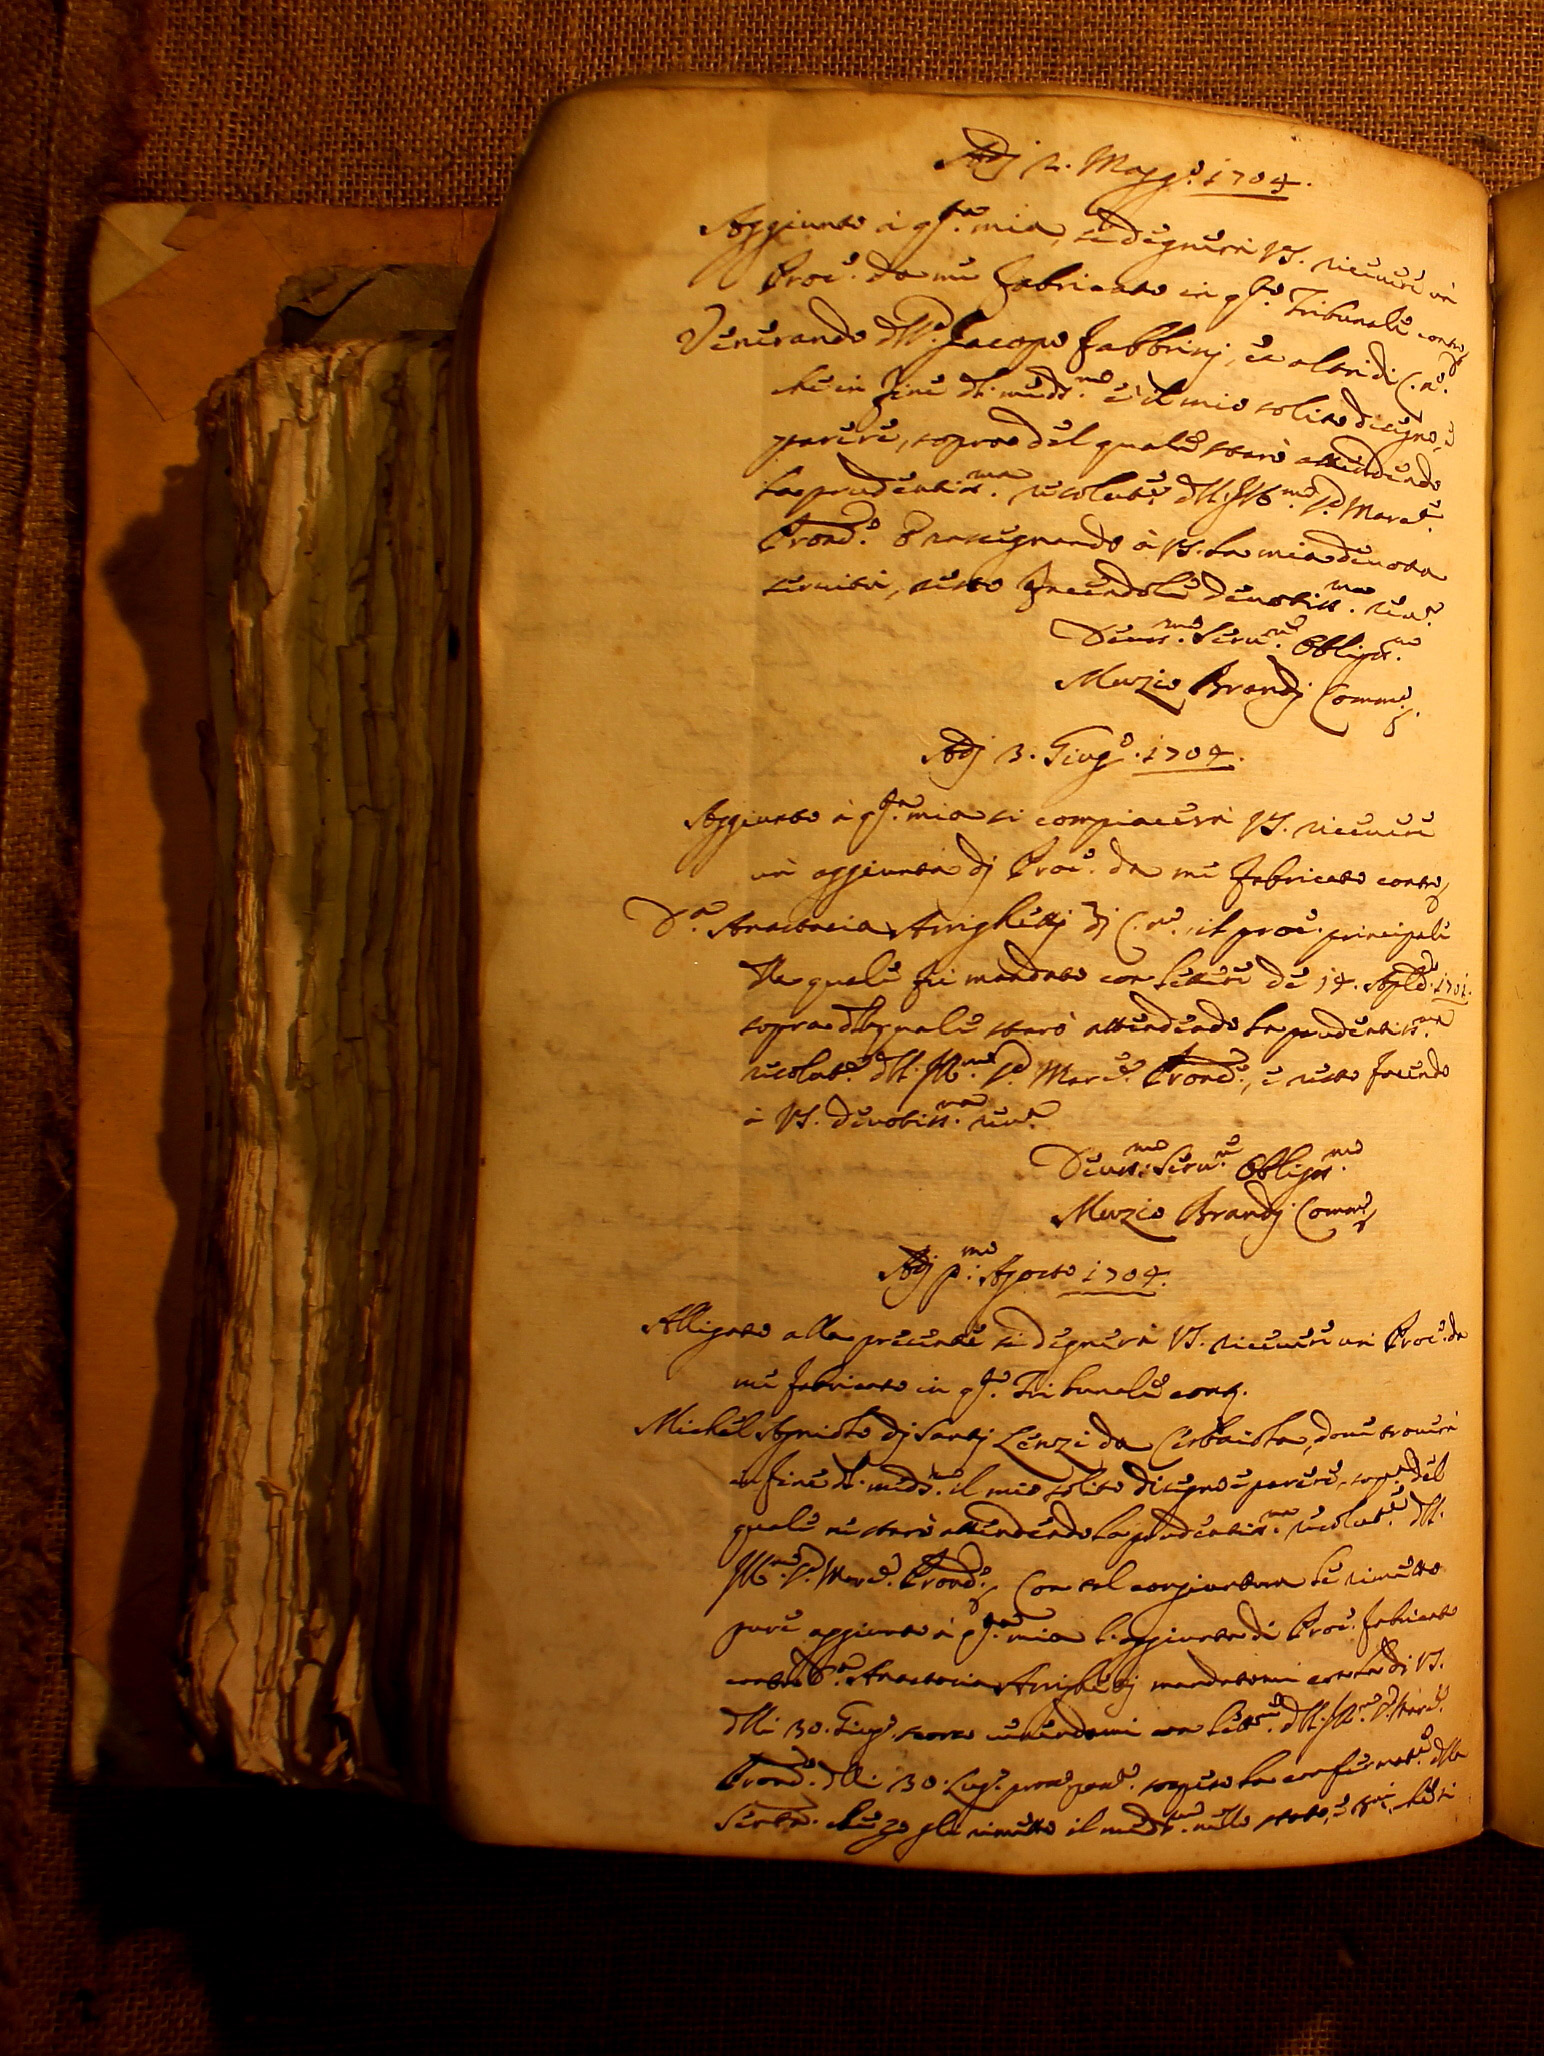 Adj 2. Magg.o 1704.
Aggiunto à q.sta mia, si degnerà VS. ricevere un
Proc.o da me fabricato in q.sto Tribunale contro
Venerando dll Jacopo Fabbrinj, et altri di C.n.o
che in fine dl med.mo è il mio solito disegno, e
parere, sopra del quale starò attendendo
la prudentiss.ma resolut.e dll. Ill.mo S. Marc.e
Prond.e rassegnando à VS. la mia devota
servitù, resto facendole devotiss.ma rev.a
Devot.mo Serv.re Obligat.mo
Muzio Brandj Comm.
Adj 3. Giug.o 1704.
Aggiunto à q.sta mia si compiacerà VS. ricevere
un aggiunta dj Proc.o da me fabricato contro
D.a Anastasia Arrighettj dj C.n.o, il proc.o principale
dla quale fù mandato con lettere de 14. 1701.
sopra dlla quale starò attendendo la prudentiss.ma
resolut.e dll. Ill.mo S. Marc.e Prond.e, e resto facendo
à VS. devotiss.ma rev.a
Devot.mo Serv.re Obligat.mo
Muzio Brandj Comm.
Adj p.mo Agosto 1704.
Alligato alla presente si degnerà VS. ricevere un Proc.o da
me fabricato in q.sto Tribunale cont.
Michel Agniolo dj Santj Lenzi da Cerbaiola, dove troverà
in fine dl med.mo il mio solito disegno e parere, sop.a del
quale ne starò attendendo la prudentiss.ma resolut.e dll.
Ill.mo S. Marc.e Prond.e Con tal congiuntura le rimetto
pure aggiunto à q.sta mia l'aggiunta di Proc.o fabricato
contro D.a Anastasia Arrighettj mandatomi con la di VS.
dlli 30. Giug.o scorso con lett.e dll. Ill.mo S. Marc.e
Prond.e dlli 30. Lug.o pross. pass. la confermat.e dlla
Sent.a gli rimetto il med.mo nello stato, e che si